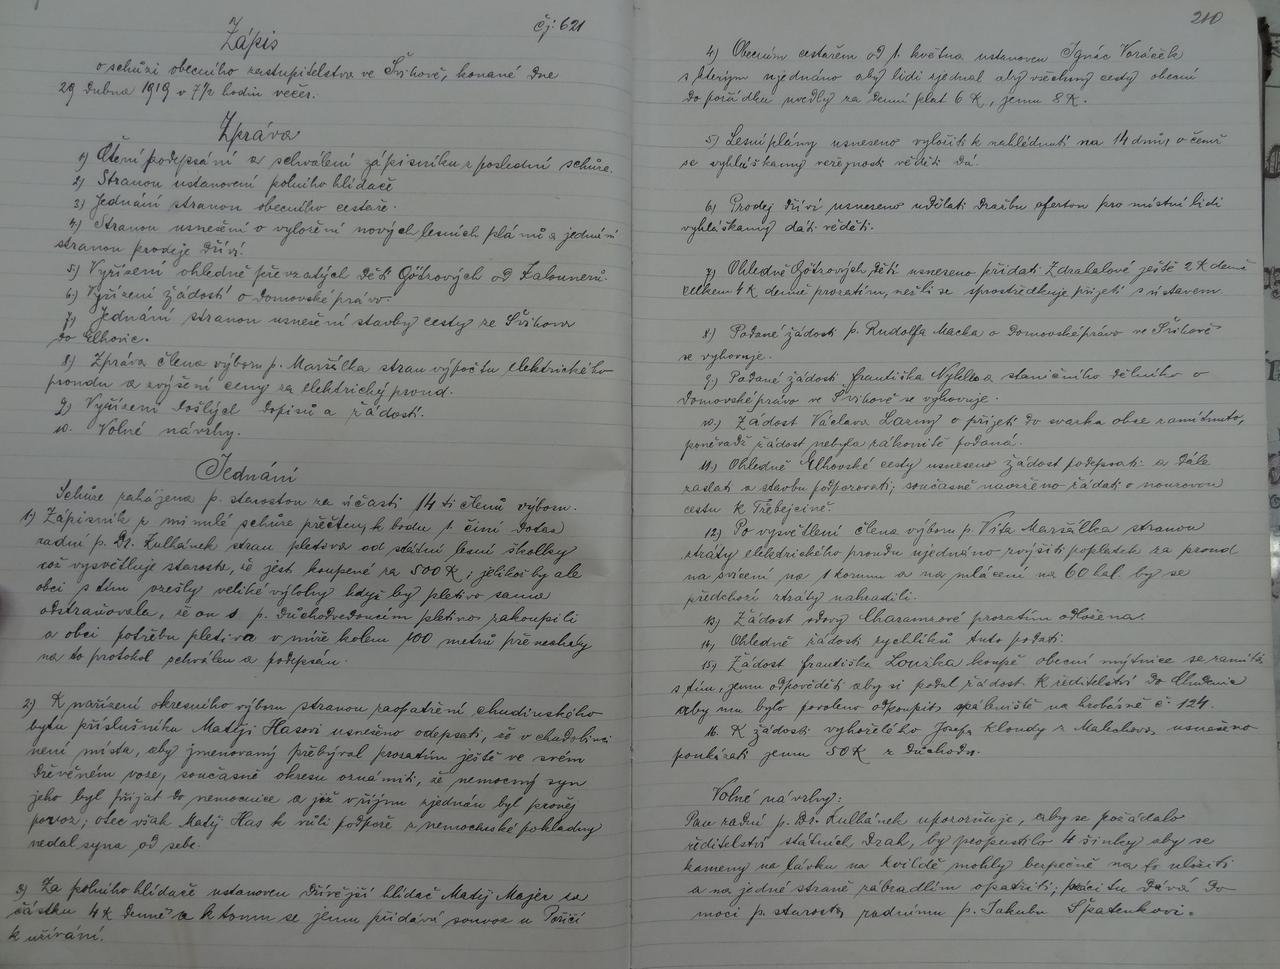 Zápis
čj: 621
o schůzi obecního zastupitelstva ve Švihově, konané dne
29 dubna 1919 v 7½ hodin večer.
Zpráva
1) Čtení podepsání a schválení zápisníku z poslední schůze.
2) Stranou ustanovení polního hlídače
3) Jednání stranou obecního cestaře.
4) Stranou usnešení o vyložení nových lesních plánů a jednání
stranou prodeje dříví.
5) Vyřízení ohledně převzatých dětí Götzových od
6) Vyřízení žádostí o domovské právo.
7) Jednání stranou usnešení stavby cesty ze Švihova
do Elhovic.
8) Zpráva člena výboru p. Maršálka stran výpočtu elektrického
proudu a zvýšení ceny za elektrický proud.
9) Vyřízení došlých dopisů a žádostí.
10. Volné návrhy.
Jednání
Schůze zahájena p. starostou za účasti 14ti členů výboru.
1) Zápisník z minulé schůze přečten, k bodu 1. činí dotaz
radní p. Dr. Zulhánek stran pletiva od státní lesní školky
což vysvětluje starosta, že jest koupené za 500 K; jelikož by ale
obci s tím vzešly veliké výlohy když by pletivo sama
odstraňovala, že on s p. důchodvedoucím pletivo zakoupili
a obci potřebu pletiva v míře kolem 100 metrů přenechaly
na to protokol schválen a podepsán.
2) K nařízení okresního výboru stranou zaopatření chudinského
bytu příslušníka Matěji Hasovi usnešeno odepsati, že v chudobinci
není místa, aby jmenovaný přebýval prozatím ještě ve svém
dřevěném voze, současně okresu oznámiti, že nemocný syn
jeho byl přijat do nemocnice a již v říjnu zjednán byl proněj
povoz; otec však Matěj Has k vůli podpoře z nemocenské pokladny
nedal syna od sebe.
3) Za polního hlídače ustanoven dřívější hlídač Matěj Majer za
částku 4 K denně a k tomu se jemu přidává souvoz u Poříčí
k užívání.
210
4) Obecním cestařem od 1. května ustanoven Ignác Voráček
s kterým ujednáno aby lidi zjednal aby všechny cesty obecní
do pořádku uvedly za denní plat 6 K, jemu 8 K.
5) Lesní plány usneseno vyložiti k nahlédnutí na 14 dnů, o čemž
se vyhláškamy veřejnosti věděti dá.
6) Prodej dříví usneseno udělati dražbu ofertou pro místní lidi
vyhláškamy dáti věděti.
7) Ohledně Götzových dětí usneseno přidati Zdrahalové ještě 2 K denně
celkem 4 K denně prozatím, nežli se zprostředkuje přijetí s ústavem.
8) Podané žádosti p. Rudolfa Macka o domovské právo ve Švihově
se vyhovuje.
9) Podané žádosti Františka staničního dělníka o
domovské právo ve Švihově se vyhovuje.
10.) Žádost Václava o přijetí do svazku obce zamítnuto,
poněvadž žádost nebyla zákonitě podaná.
11.) Ohledně Elhovské cesty usneseno žádost podepsati a dále
zaslati a stavbu podporovati; současně navrženo žádati o nouzovou
cestu k Třebejčině.
12) Po vysvětlení člena výboru p. Víta Maršálka stranou
ztráty elektrického proudu ujednáno zvýšiti poplatek za proud
na svícení na 1 korunu a na mlácení na 60 hal. by se
předchozí ztráty nahradili.
13) Žádost vdovy Charamzové prozatím odložena.
14, Ohledně žádosti rychlíků tuto podati.
15, Žádost Františka koupě obecní mýtnice se zamítá
s tím, jemu odpověděti aby si podal žádost k ředitelství do Chudenic
aby mu bylo povoleno odkoupiti spáleniště na č. 124.
16. K žádosti vyhořelého Josefa Kloudy z Malechova, usneseno
poukázati jemu 50 K z důchodu.
Volné návrhy:
Pan radní p. Dr. Zulhánek upozorňuje, aby se požádalo
ředitelství státních drah, by propustilo 4 šínky aby se
kameny na lávku na Kvildě mohly bezpečně na to uložiti
a na jedné straně zábradlím opatřiti; práci tu dává do
moci p. starosta radnímu p. Jakubu Špatenkovi.